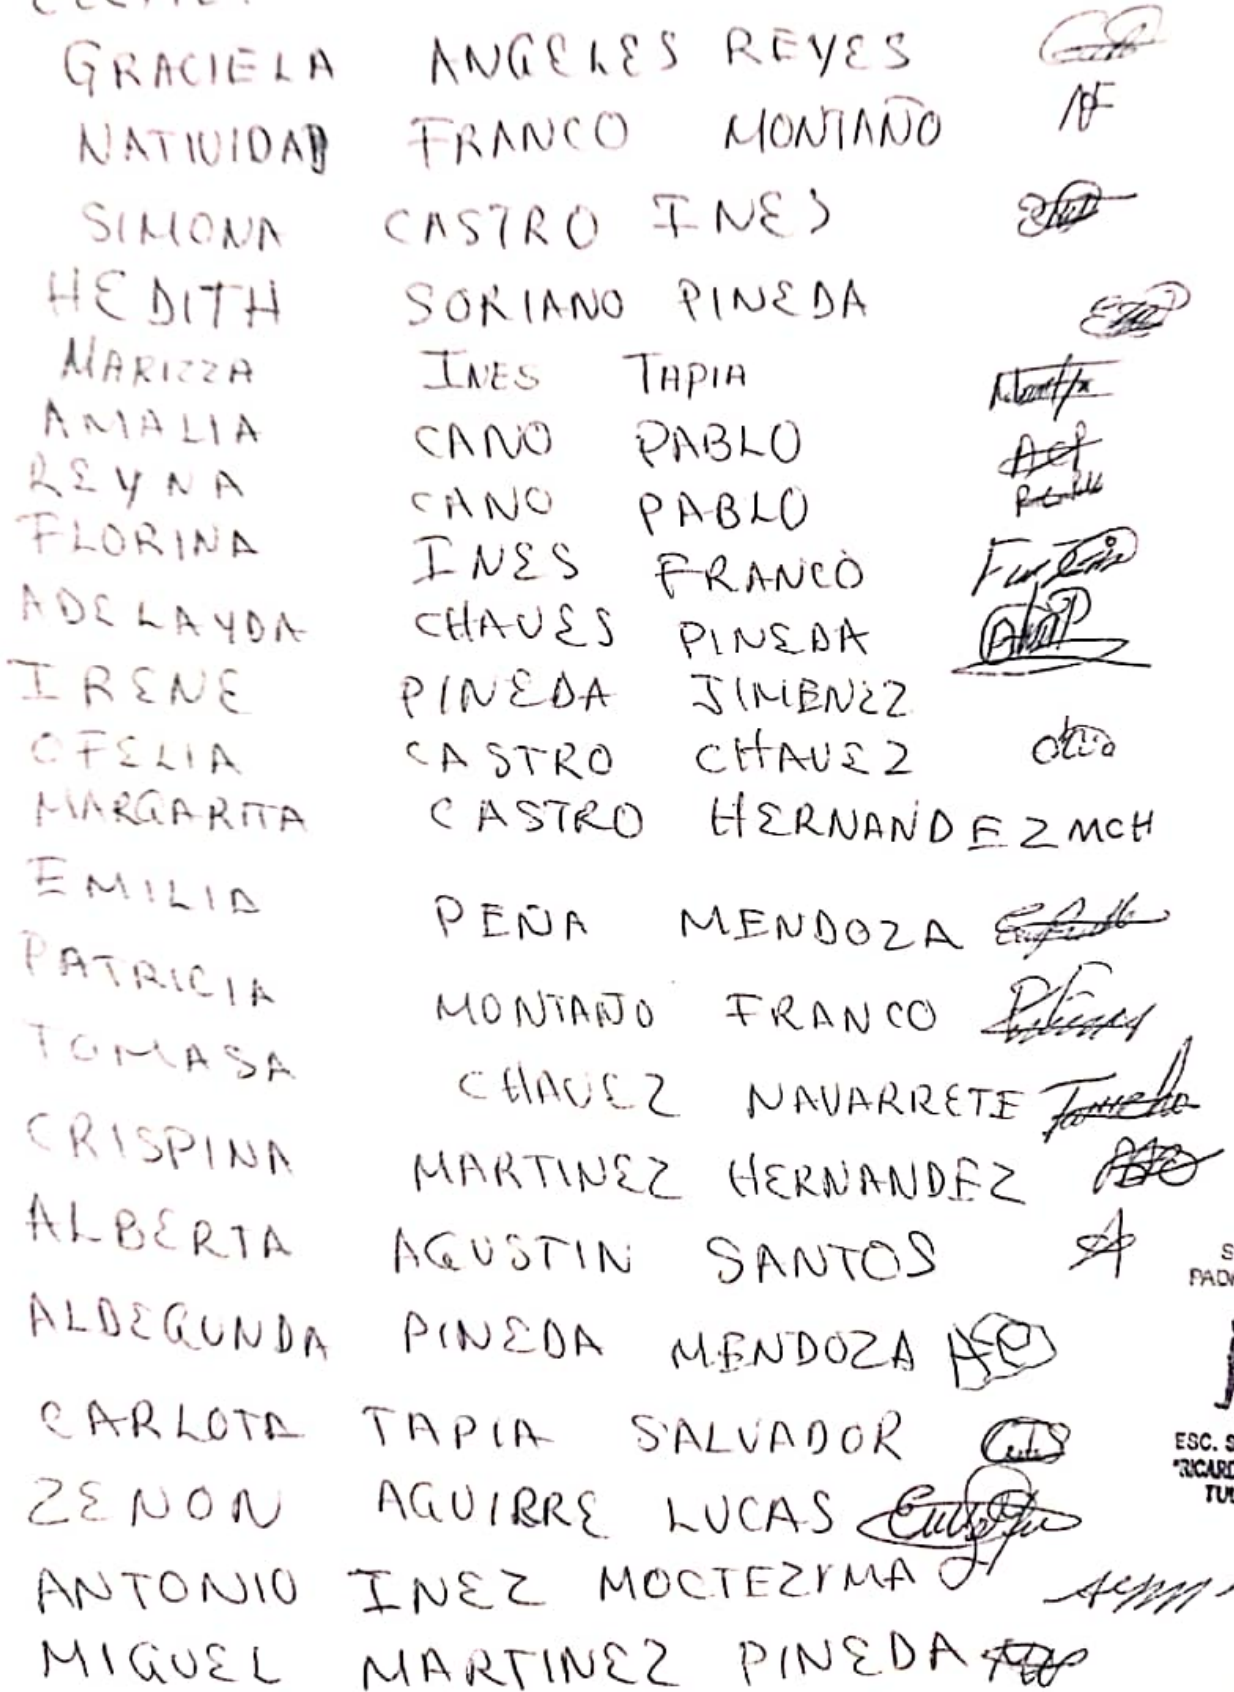 GRACIELA ANGELES REYES
NATIVIDAD FRANCO MONTAÑO NF
SIMONA CASTRO INES
HEDITH SORIANO PINEDA
MARIZZA INES TAPIA
AMALIA CANO PABLO ACP
REYNA CANO PABLO
FLORINA INES FRANCO
ADELAYDA CHAVES PINEDA
IRENE PINEDA JIMENEZ
OFELIA CASTRO CHAVEZ
MARGARITA CASTRO HERNANDEZ MCH
EMILIA PEÑA MENDOZA
PATRICIA MONTAÑO FRANCO
TOMASA CHAVEZ NAVARRETE
CRISPINA MARTINEZ HERNANDEZ
ALBERTA AGUSTIN SANTOS A
ALDEGUNDA PINEDA MENDOZA
CARLOTA TAPIA SALVADOR
ESC. S
ZENON AGUIRRE LUCAS
ANTONIO INEZ MOCTEZYMA
MIGUEL MARTINEZ PINEDA